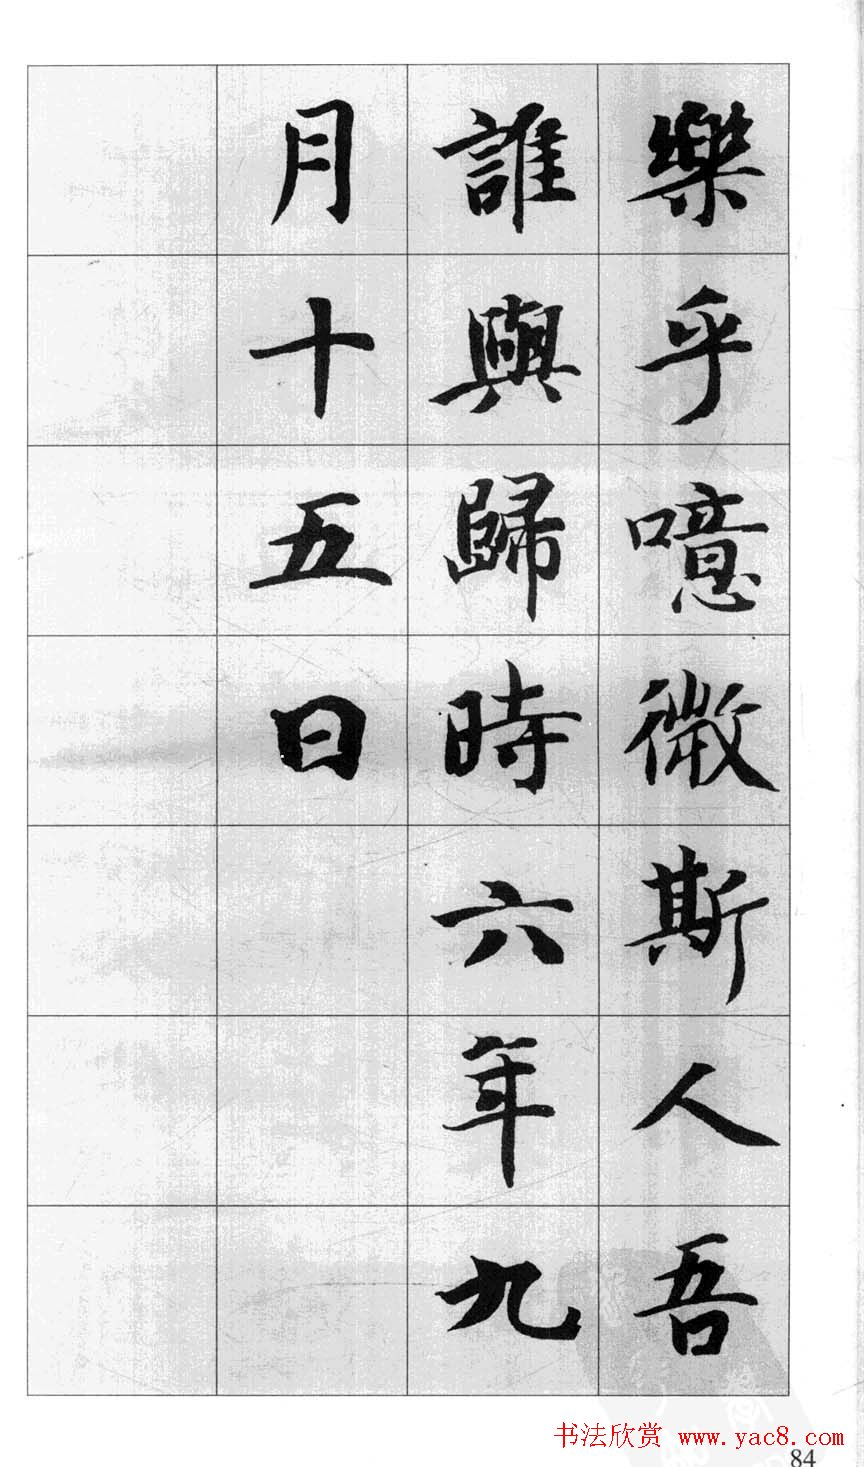 樂乎噫微斯人吾
誰與歸時六年九
月十五日
书法欣赏 www.yac8.com
84